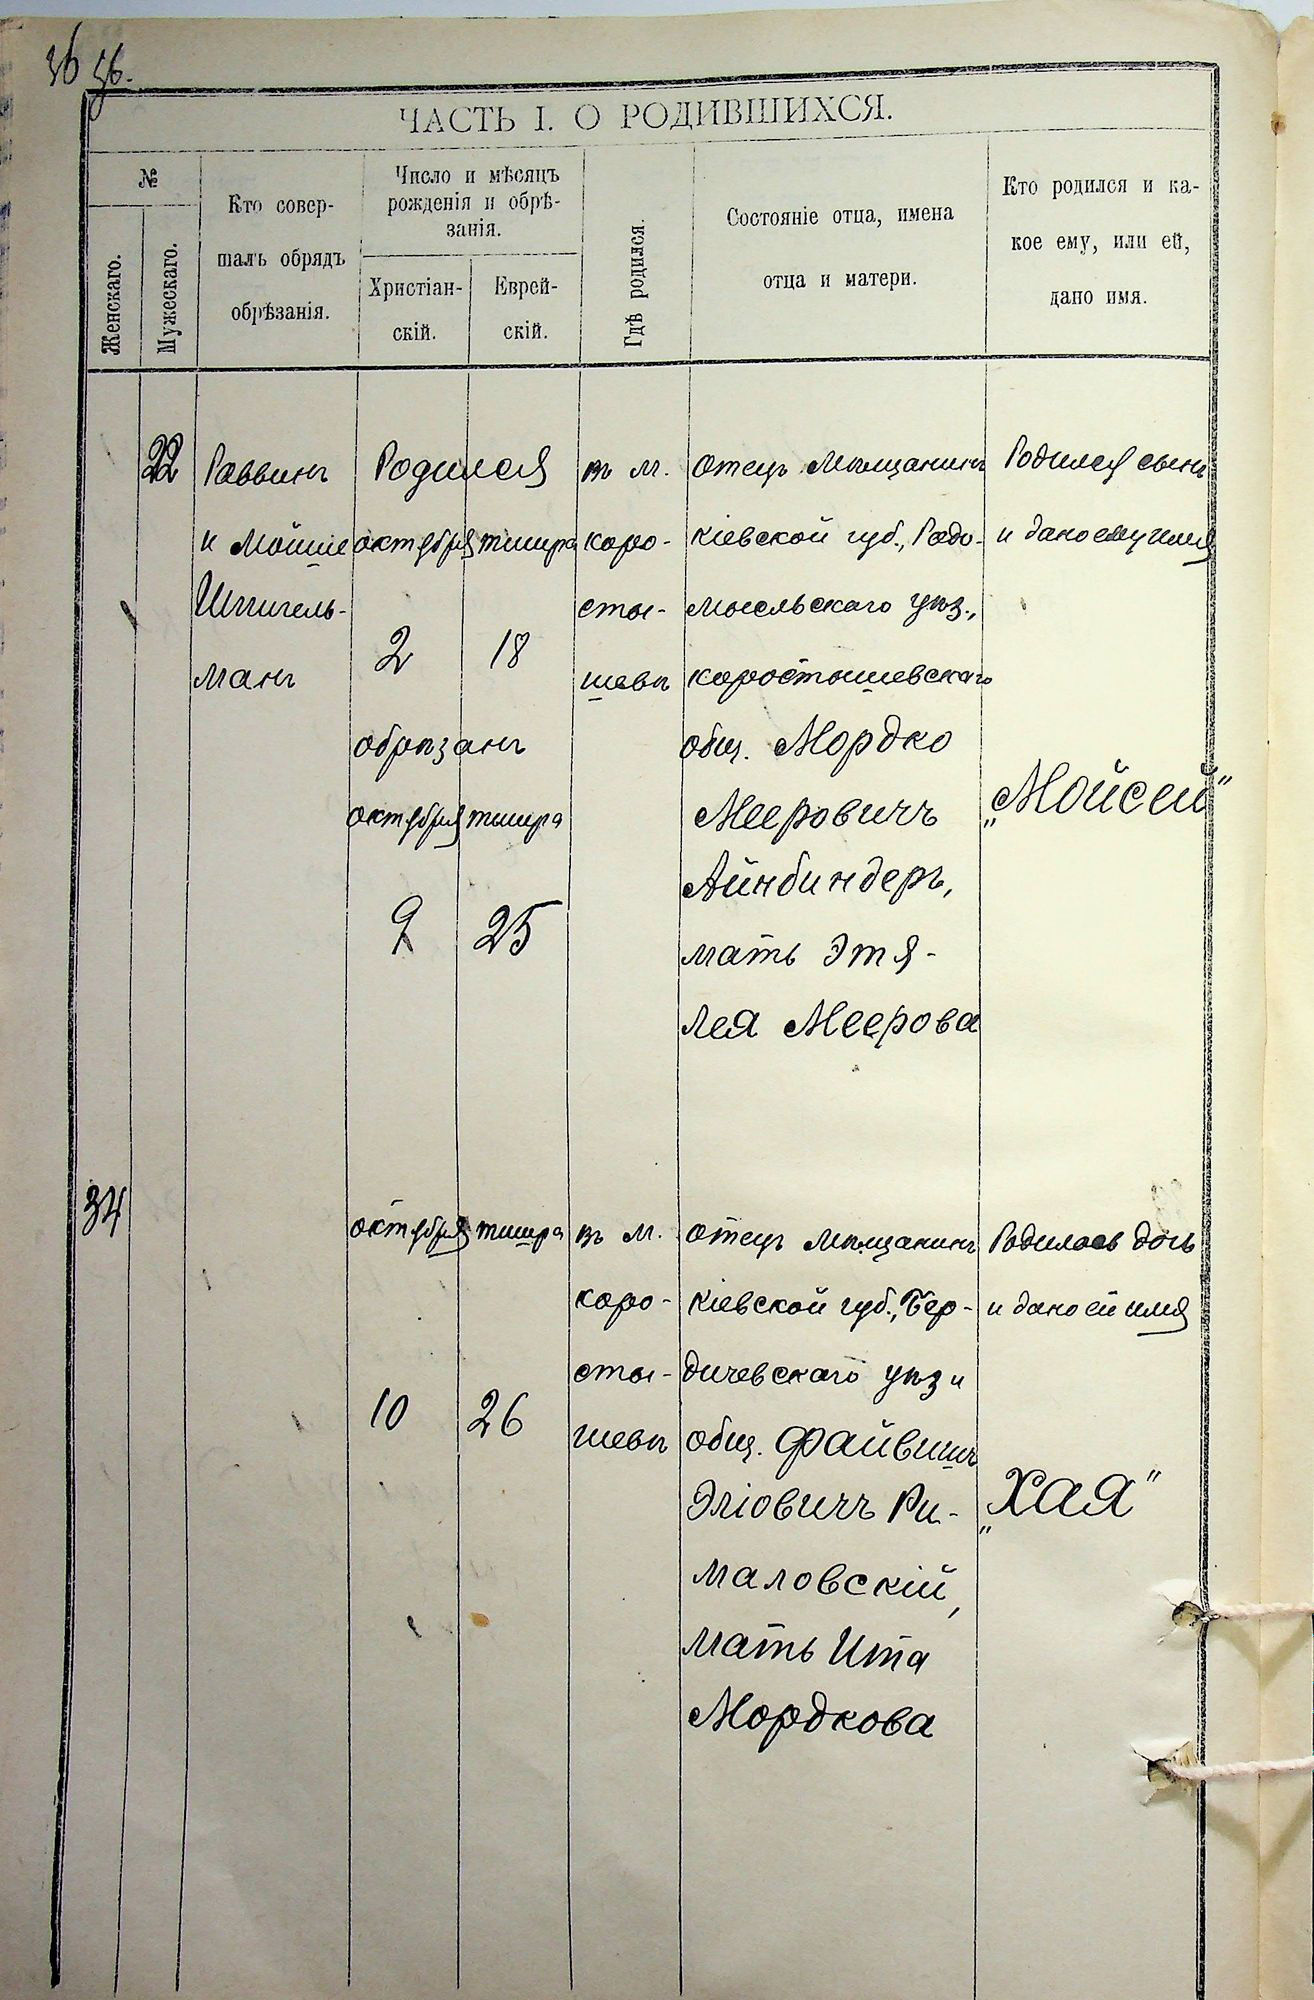 36 36.
ЧАСТЬ I. О РОДИВШИХСЯ.
№
Женскаго.
Мужескаго.
Кто совер-
шалъ обрядъ
обрѣзанія.
Число и мѣсяцъ
рожденія и обрѣ-
занія.
Христіан-
скій.
Еврей-
скій.
Гдѣ родился.
Состояніе отца, имена
отца и матери.
Кто родился и ка-
кое ему, или ей,
дано имя.
22
Раввинъ
и Мойше
Шпигель-
манъ
Родился
октября тишра
2 18
обрѣзанъ
октября тишра
9 25
въ м.
коро-
сты-
шевѣ
отецъ мѣщанинъ
кіевской губ., Радо-
мысльскаго уѣз.,
коростышевскаго
общ. Мордко
Мееровичъ
Айнбиндеръ,
мать Этя-
Лея Меерова
Родился сынъ
и дано ему имя
„Мойсей"
34
октября тишра
10 26
въ м.
коро-
сты-
шевѣ
отецъ мѣщанинъ
кіевской губ., Бер-
дичевскаго уѣз и
общ. Файвишъ
Эліовичъ Ри-
маловскій,
мать Ита
Мордкова
Родилась дочь
и дано ей имя
„Хая"